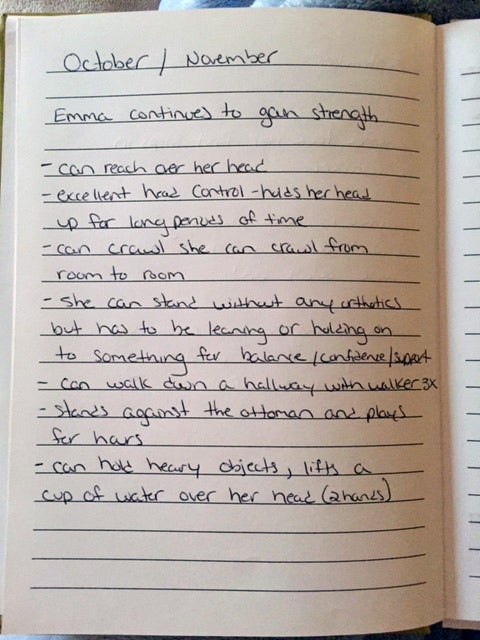 October / November
Emma continues to gain strength
- can reach over her head
- excellent head control - holds her head
up for long periods of time
- can crawl she can crawl from
room to room
- she can stand without any orthotics
but has to be leaning or holding on
to something for balance/confidence/support
- can walk down a hallway with walker 3x
- stands against the ottoman and plays
for hours
- can hold heavy objects, lifts a
cup of water over her head (2 hands)